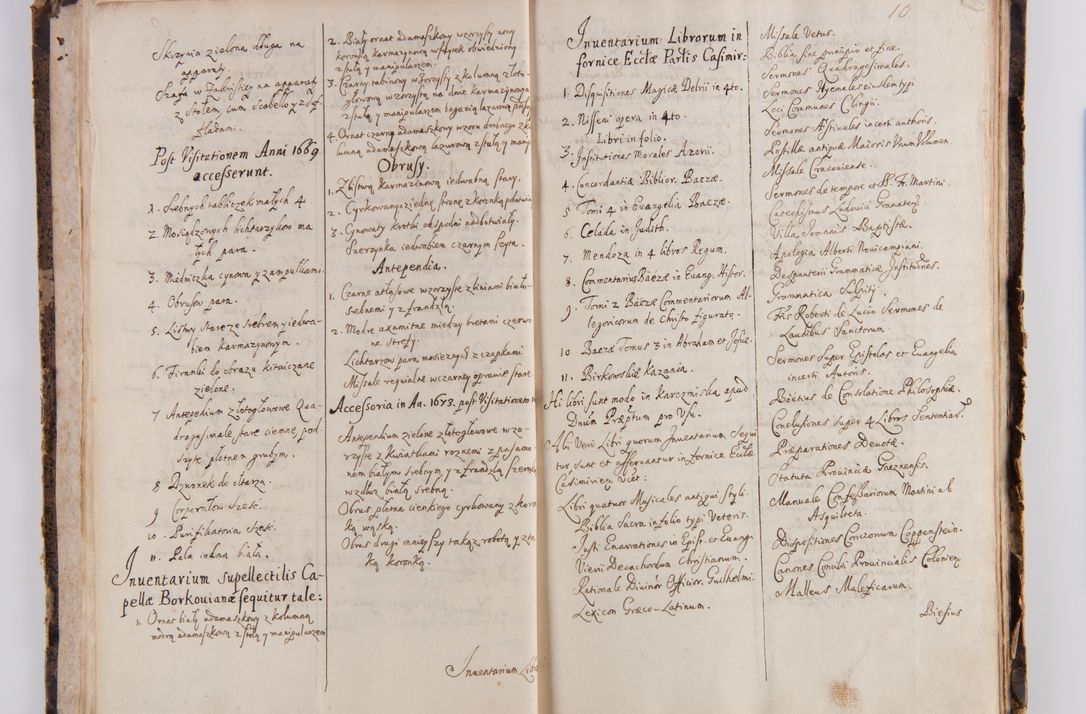 Skrzynia zielona długa na
apparaty.
Szafa w Zakristyey na apparaty
z stołem cum Scabello y z Szu
fladami.
Post Visitationem Anni 1669
accesserunt.
1. Srebnych tabliczek małych 4
2. Mosiądzowych lichtarzykow ma
łych para.
3. Miedniczka cynowa y z ampułkami.
4. Obrusow para.
5. Listwy stare ze srebrem y iedwa-
biem karmazynowym.
6. Firanki do obrazu kitaiczane
zielone.
7 Antepedium złotogłowowe Qua-
dragesimale, stare ciemne, pod-
szyte płotnem grubym.
8 Dzwonek do ołtarza.
9 Corporałow sześć.
10. Purificatoria sześć.
11. Pala iedna biała.
Inuentarium supellectilis Ca-
pellæ Borkouianæ sequitur tale:
1. Ornat biały adamaszkowy z kolumną
morą adamaszkową z stułą y manipularzem
2. Biały ornat adamaszkowy wzorzysty nowy
koronką karmazynową wstążek obwiedziony
z stułą y manipularzem.
3. Czarny tabinowy wzorzysty z kolumną złoto-
głowową wzorzystą na dnie karmazynowym
z stułą y manipularzem bagazią lazurową
4. Ornat czarny adamaszkowy wzoru drobnego z ko
lumną adamaszkową lazurową z stułą y mani
Obrusy.
1. Z listwą karmazynową iedwabną stary.
2. Cyrkowany z iedną stronę z koronką
3. Gynowaty krotki od spodni nadbotwiały.
Szerzynka iedwabiem czarnym szyta.
Antependia.
1. Czarne atłasowe wzorzyste z liniami biało-
srebnemi y z frandzlą.
2. Modre axamitne między bretami czerwo
ne strefy.
Lichtarzow para mosieznych z czopkami.
Missale requialne w czarney oprawie stare
Accessoria in An. 1673. post Visitationem
Antependium zielone złotogłowowe wzo-
rzyste z kwiatkami roznemi z pasamo
nem białym srebnym y z frandzlą
wzdłuz białą srebną.
Obrus płotna cienkiego cyrkowany z koro
ką wąską.
Obrus drugi mnieyszy takąz robotą y z ta
ką koronką.
Inuentarium Libr
10.
Inuentarium Librorum in
fornice Ecclæ Parlis Casimir:
1 Disquisitiones Magicæ Delrii in 4to.
2. Nisseni opera in 4to.
Libri in folio.
3. Institutiones Morales Azorii.
4. Concordantiæ Biblior. Baezæ.
5 Tomi 4 in Euangelia Baezæ.
6. Celada in Judith.
7. Mendoza in 4 libros Regum.
8. Commentarius Baezæ in Euang. Histor.
9. Tomi 2 Baezæ Commentariorum Al-
legoricorum de Christo figurato.
10 Baezæ Tomus 3 in Abraham et Josue.
11. Birkowskie Kazania.
Hi libri sunt modo in Karczmiska apud
Dnum Præptum pro Usu.
Alii Verò Libri quorum Inuentarium Sequi
tur, sunt et asseruantur in fornice Ecclæ
Casimirien. Vzet:
Libri quatuor Musicales antiqui styli.
Biblia Sacra in folio typi Veteris.
Justi Enarrationes in Epis. et Euang.
Vierii Decachordum Christianum.
Rationale Diuinor. Officior. Guilhelmi.
Lexicon Græco-Latinum.
Missale Vetus.
Biblia sine principio et fine.
Sermones Quadragesimales.
Sermones Hyemales eiusdem typi
Loci Communes Clingii.
Sermones Æstiuales incerti authoris.
Postillæ antiquæ Maioris Vnum Volumen.
Missale Cracouiense.
Sermones de tempore et SS. Fr. Martini.
Catechismus Ludouici Granaten.
Villa Ioannis Baptistæ.
Apologia Alberti Nouicampiani.
Despauterii Grammaticæ Institutiones.
Grammatica
Fris Roberti de Lucio Sermones de
Laudibus Sanctorum.
Sermones super Epistolas et Euangelia
incerti Autoris.
Boëtius de Consolatione Philosophiæ.
Conclusiones super 4 Libros Sententiar.
Præparationes Deuotæ.
Statuta Prouinciæ Gneznensis.
Manuale Confessariorum Martini ab
Asquilteta.
Dispositiones Concionum Coppenstein.
Canones Concilii Prouincialis Colonien
Malleus Maleficarum.
Biesius